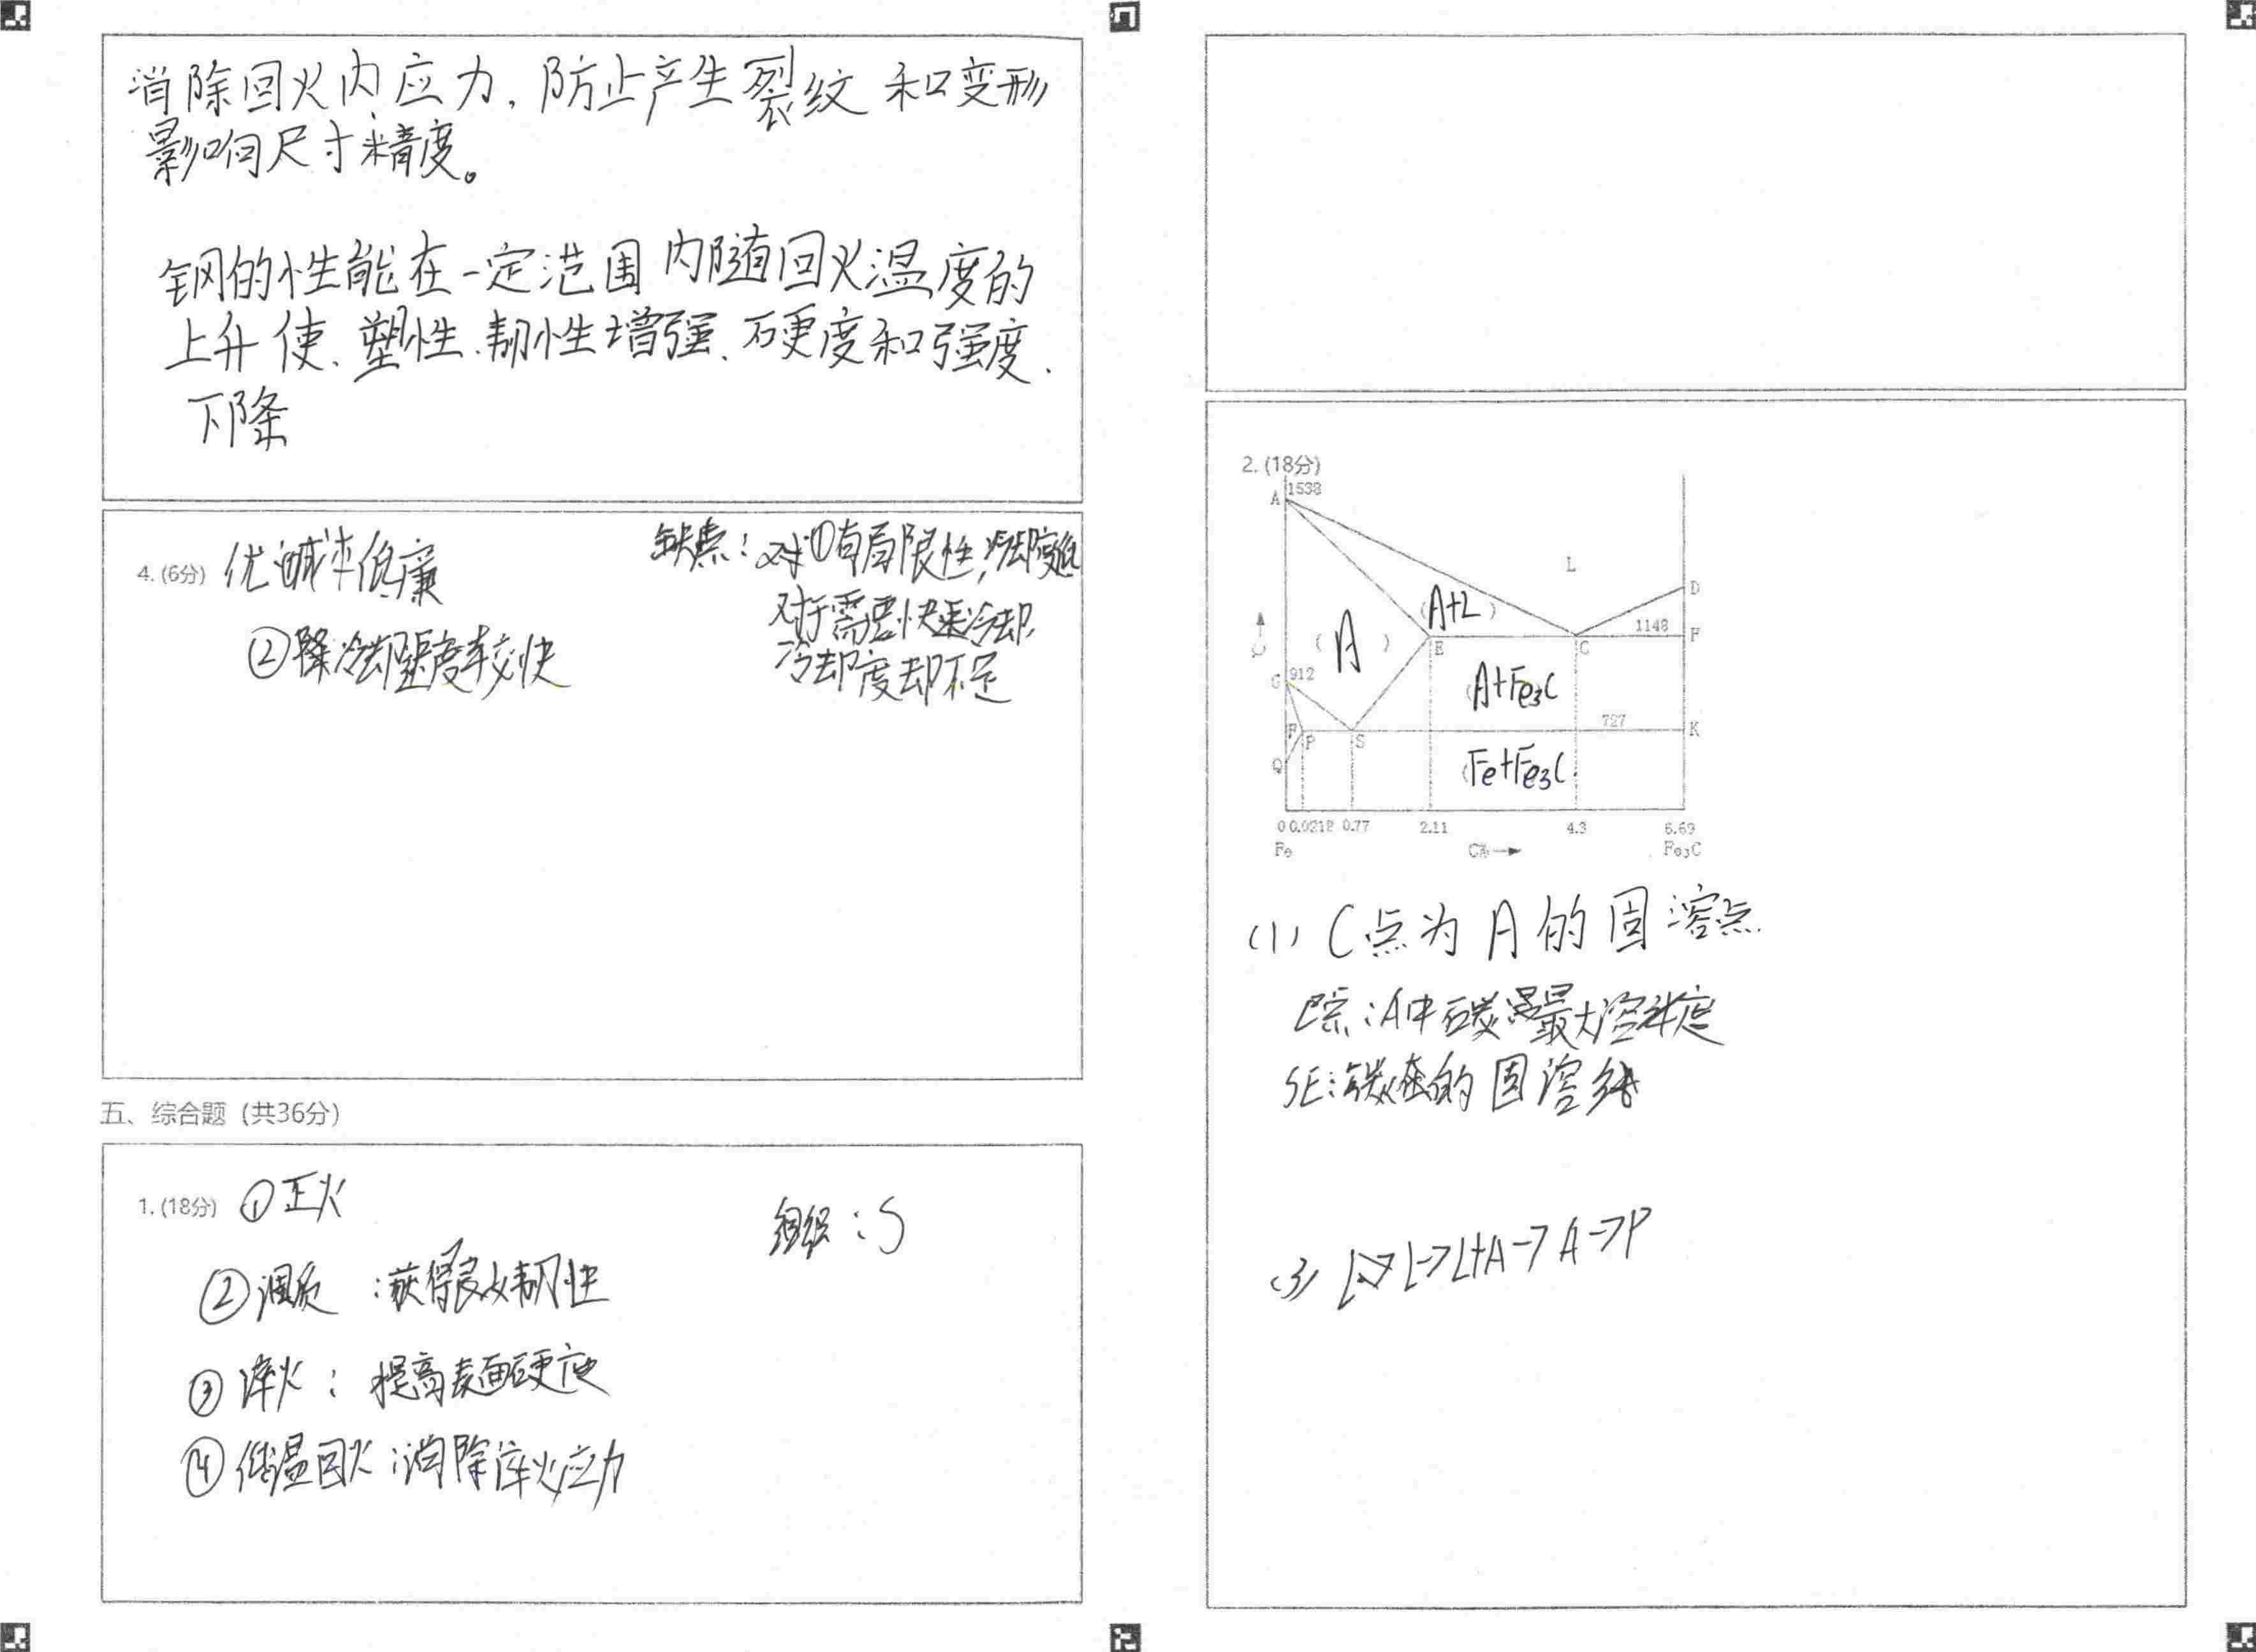 消除回火内应力,防止产生裂纹和变形
影响尺寸精度。
钢的性能在一定范围内随回火温度的
上升使、塑性、韧性增强、硬度和强度、
下降
4. (6分) 优 低廉
②降冷却速度较快
缺点:对①有局限性,冷却
对于需要快速冷却,
冷却度却不足
五、综合题 (共36分)
1. (18分) ①正火
组织:S
②调质:获得良好韧性
③淬火:提高表面硬度
④低温回火:消除淬火应力
2. (18分)
A 1538
L
D
(A+L)
1148 F
(A)
E
C
G 912
(A+Fe3C
727
F P S K
Q
(Fe+Fe3C
0 0.0218 0.77 2.11 4.3 6.69
Fe C% Fe3C
(1) C点为A的固溶点
E点:A中碳最大溶解度
SE:碳在的固溶线
(3) L->L+A->A->P